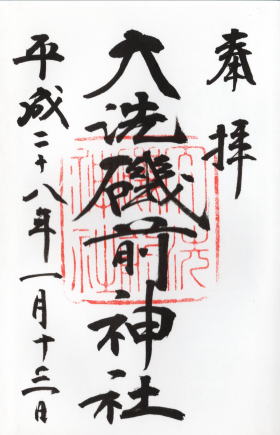 奉拝
大洗磯前神社
平成二十八年一月十三日